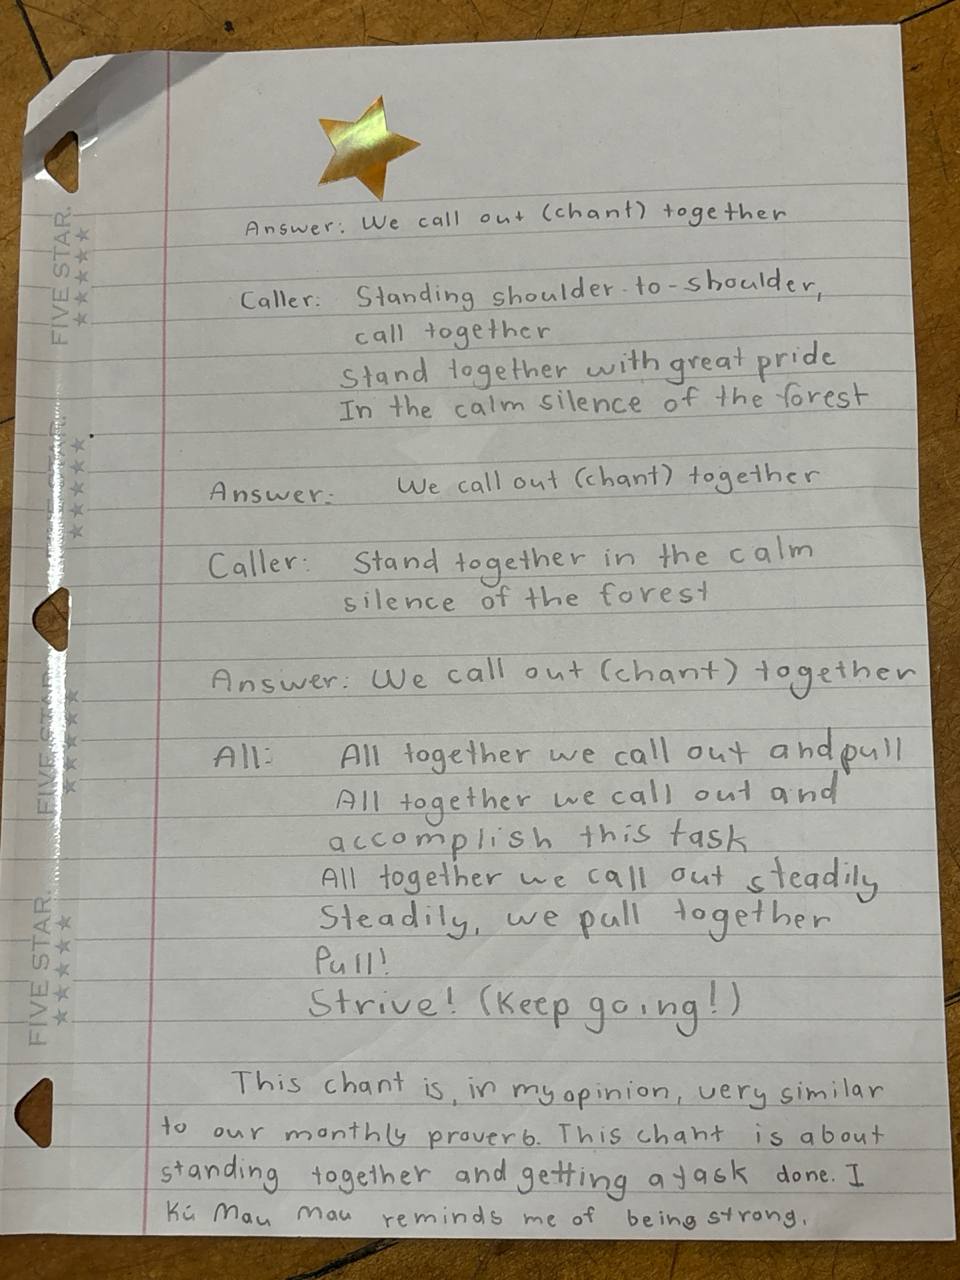 Answer: We call out (chant) together
Caller: Standing shoulder-to-shoulder,
call together
Stand together with great pride
In the calm silence of the forest
Answer: We call out (chant) together
Caller: Stand together in the calm
silence of the forest
Answer: We call out (chant) together
All: All together we call out and pull
All together we call out and
accomplish this task
All together we call out steadily
Steadily, we pull together
Pull!
Strive! (Keep going!)
This chant is, in my opinion, very similar
to our monthly proverb. This chant is about
standing together and getting a task done. I
Kū Mau Mau reminds me of being strong.
FIVE STAR.
FIVE STAR.
FIVE STAR.
FIVE STAR.